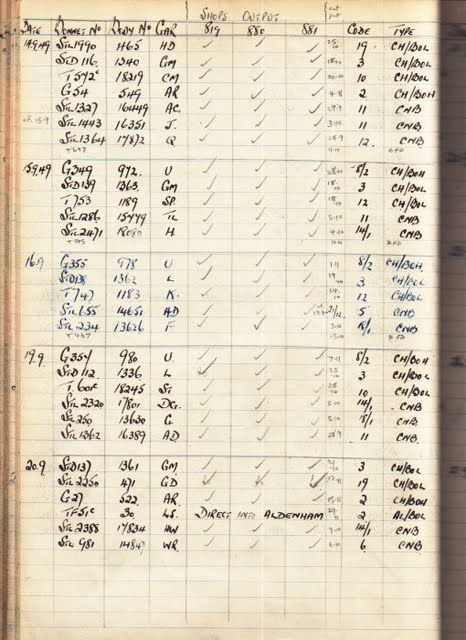 SHOPS OUTPUT out
DATE BONNET NO BODY NO GAR 819 880 881 CODE TYPE
14.9.49 STL 1990 1465 HD ✓ ✓ ✓ 19 CH/BOL
STD 116 1340 GM ✓ ✓ ✓ 3 CH/BOL
T 572c 18219 CM ✓ ✓ ✓ 10 CH/BOL
G 54 549 AR ✓ ✓ ✓ 4-8 2 CH/BOH
STL 1327 16449 AC ✓ ✓ ✓ 11 CNB
STL 1443 16351 J. ✓ ✓ ✓ 3-10 11 CNB
STL 1364 17872 Q ✓ ✓ ✓ 12. CNB
15.9.49 G349 972. U ✓ ✓ ✓ 8/2 CH/BOH
STD139 1363 GM ✓ ✓ ✓ 3 CH/BOL
T753 1189 SP. ✓ ✓ ✓ 12 CH/BOL
STL 1286 15479 TL ✓ ✓ ✓ 5-10 11 CNB
STL 2471 18080 H ✓ ✓ ✓ 4-10 14/1 CNB
16.9 G355 978 U ✓ ✓ ✓ 1-11 8/2 CH/BOH
STD138 1362 L ✓ ✓ ✓ 3 CH/BOL
T747 1183 K. ✓ ✓ ✓ 12 CH/BOL
STL 655 14651 AD ✓ ✓ 5 CNB
STL 234 13626 F ✓ ✓ ✓ 3-10 8/1 CNB
19.9. G354 980 U ✓ ✓ ✓ 7-11 8/2 CH/BOH
STD 112 1336 L ✓ ✓ ✓ 3 CH/BOL
T. 601c 18245 ST ✓ ✓ ✓ 10 CH/BOL
STL 2320 17801 DG. ✓ ✓ ✓ 5-10 14/1 CNB
STL 250 13630 G. ✓ ✓ ✓ 5-10 8/1 CNB
STL 1362 16389 AD ✓ ✓ ✓ 28-9 11 CNB
20.9 STD137 1361 GM ✓ ✓ ✓ 3 CH/BOL
STL 2250 471 GD ✓ ✓ ✓ 19 CH/BOL
G27 522 AR ✓ ✓ ✓ 2 CH/BOH
TF51c 30 LS. DIRECT INTO ALDENHAM 2 AL/BOL
STL 2388 17834 HW ✓ ✓ ✓ 7-10 14/1 CNB
STL 981 14849 WR. ✓ ✓ ✓ 6 CNB